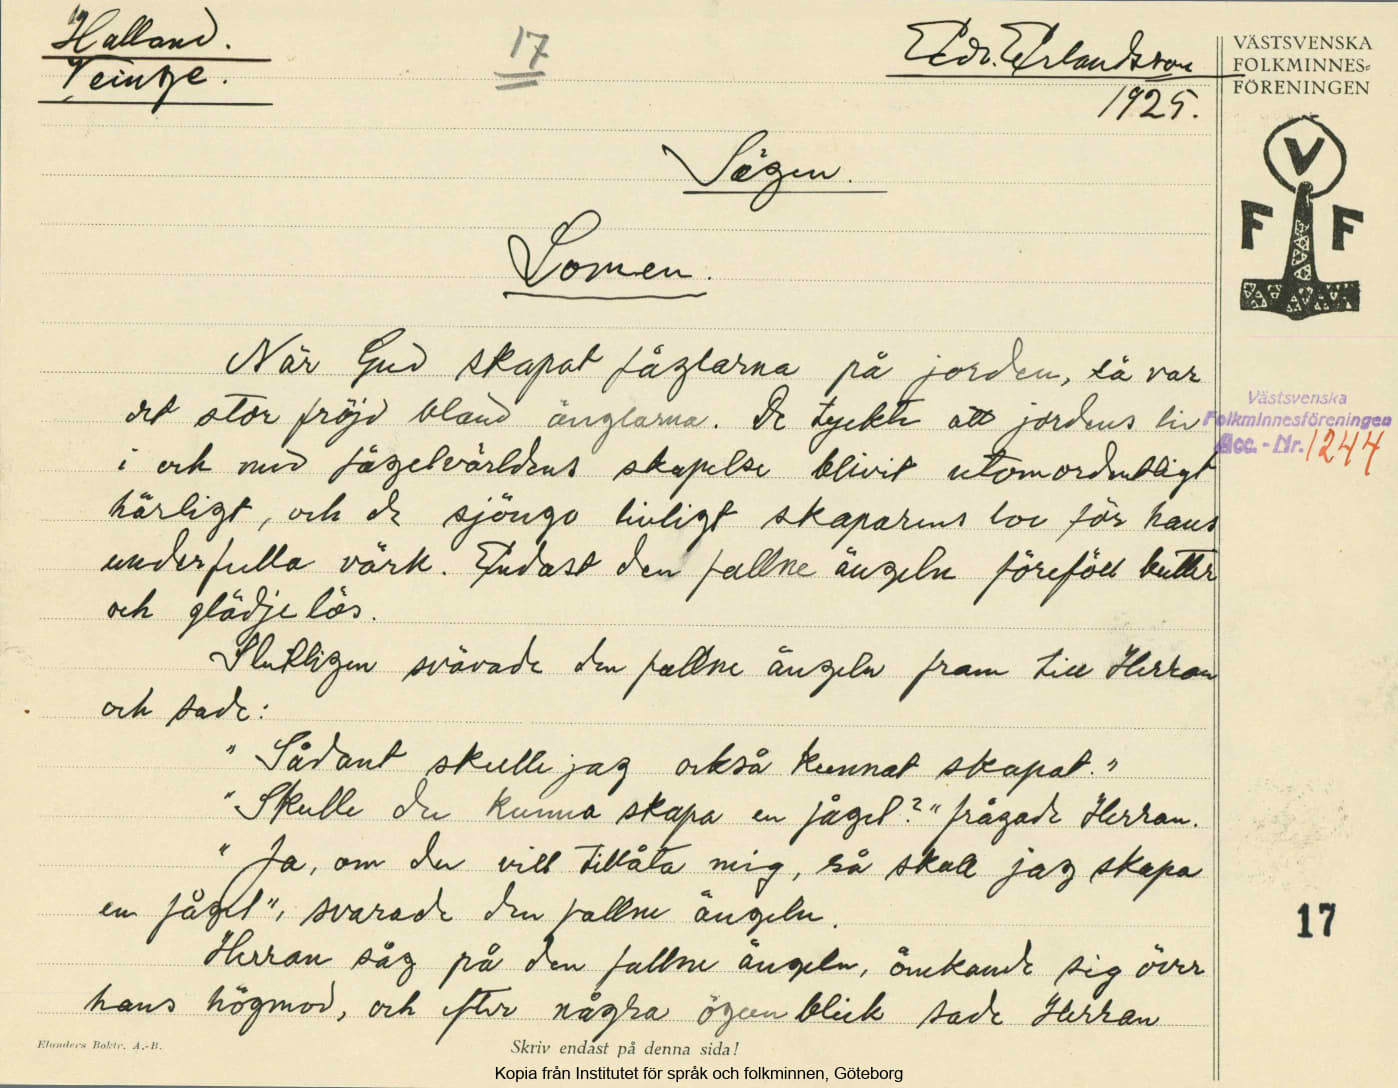 Halland.
Veinge.
17
Edv. Erlandsson
1925.
VÄSTSVENSKA
FOLKMINNES=
FÖRENINGEN
V
F F
Sägen.
Lomen.
När Gud skapat fåglarna på jorden, så var
det stor fröjd bland änglarna. De tyckte att jordens liv
i och med fågelvärldens skapelse blivit utomordentligt
härligt, och de sjöngo livligt skaparens lov för hans
underfulla värk. Endast den fallne ängeln föreföll butter
och glädjelös.
Slutligen svävade den fallne ängeln fram till Herran
och sade:
"Sådant skulle jag också kunnat skapat."
"Skulle du kunna skapa en fågel?" frågade Herran.
"Ja, om du vill tillåta mig, så skall jag skapa
en fågel", svarade den fallne ängeln.
Herran såg på den fallne ängeln, ömkande sig över
hans högmod, och efter några ögonblick sade Herran
Västsvenska
Folkminnesföreningen
Acc.-Nr. 1244
17
Elanders Boktr. A.-B.
Skriv endast på denna sida!
Kopia från Institutet för språk och folkminnen, Göteborg